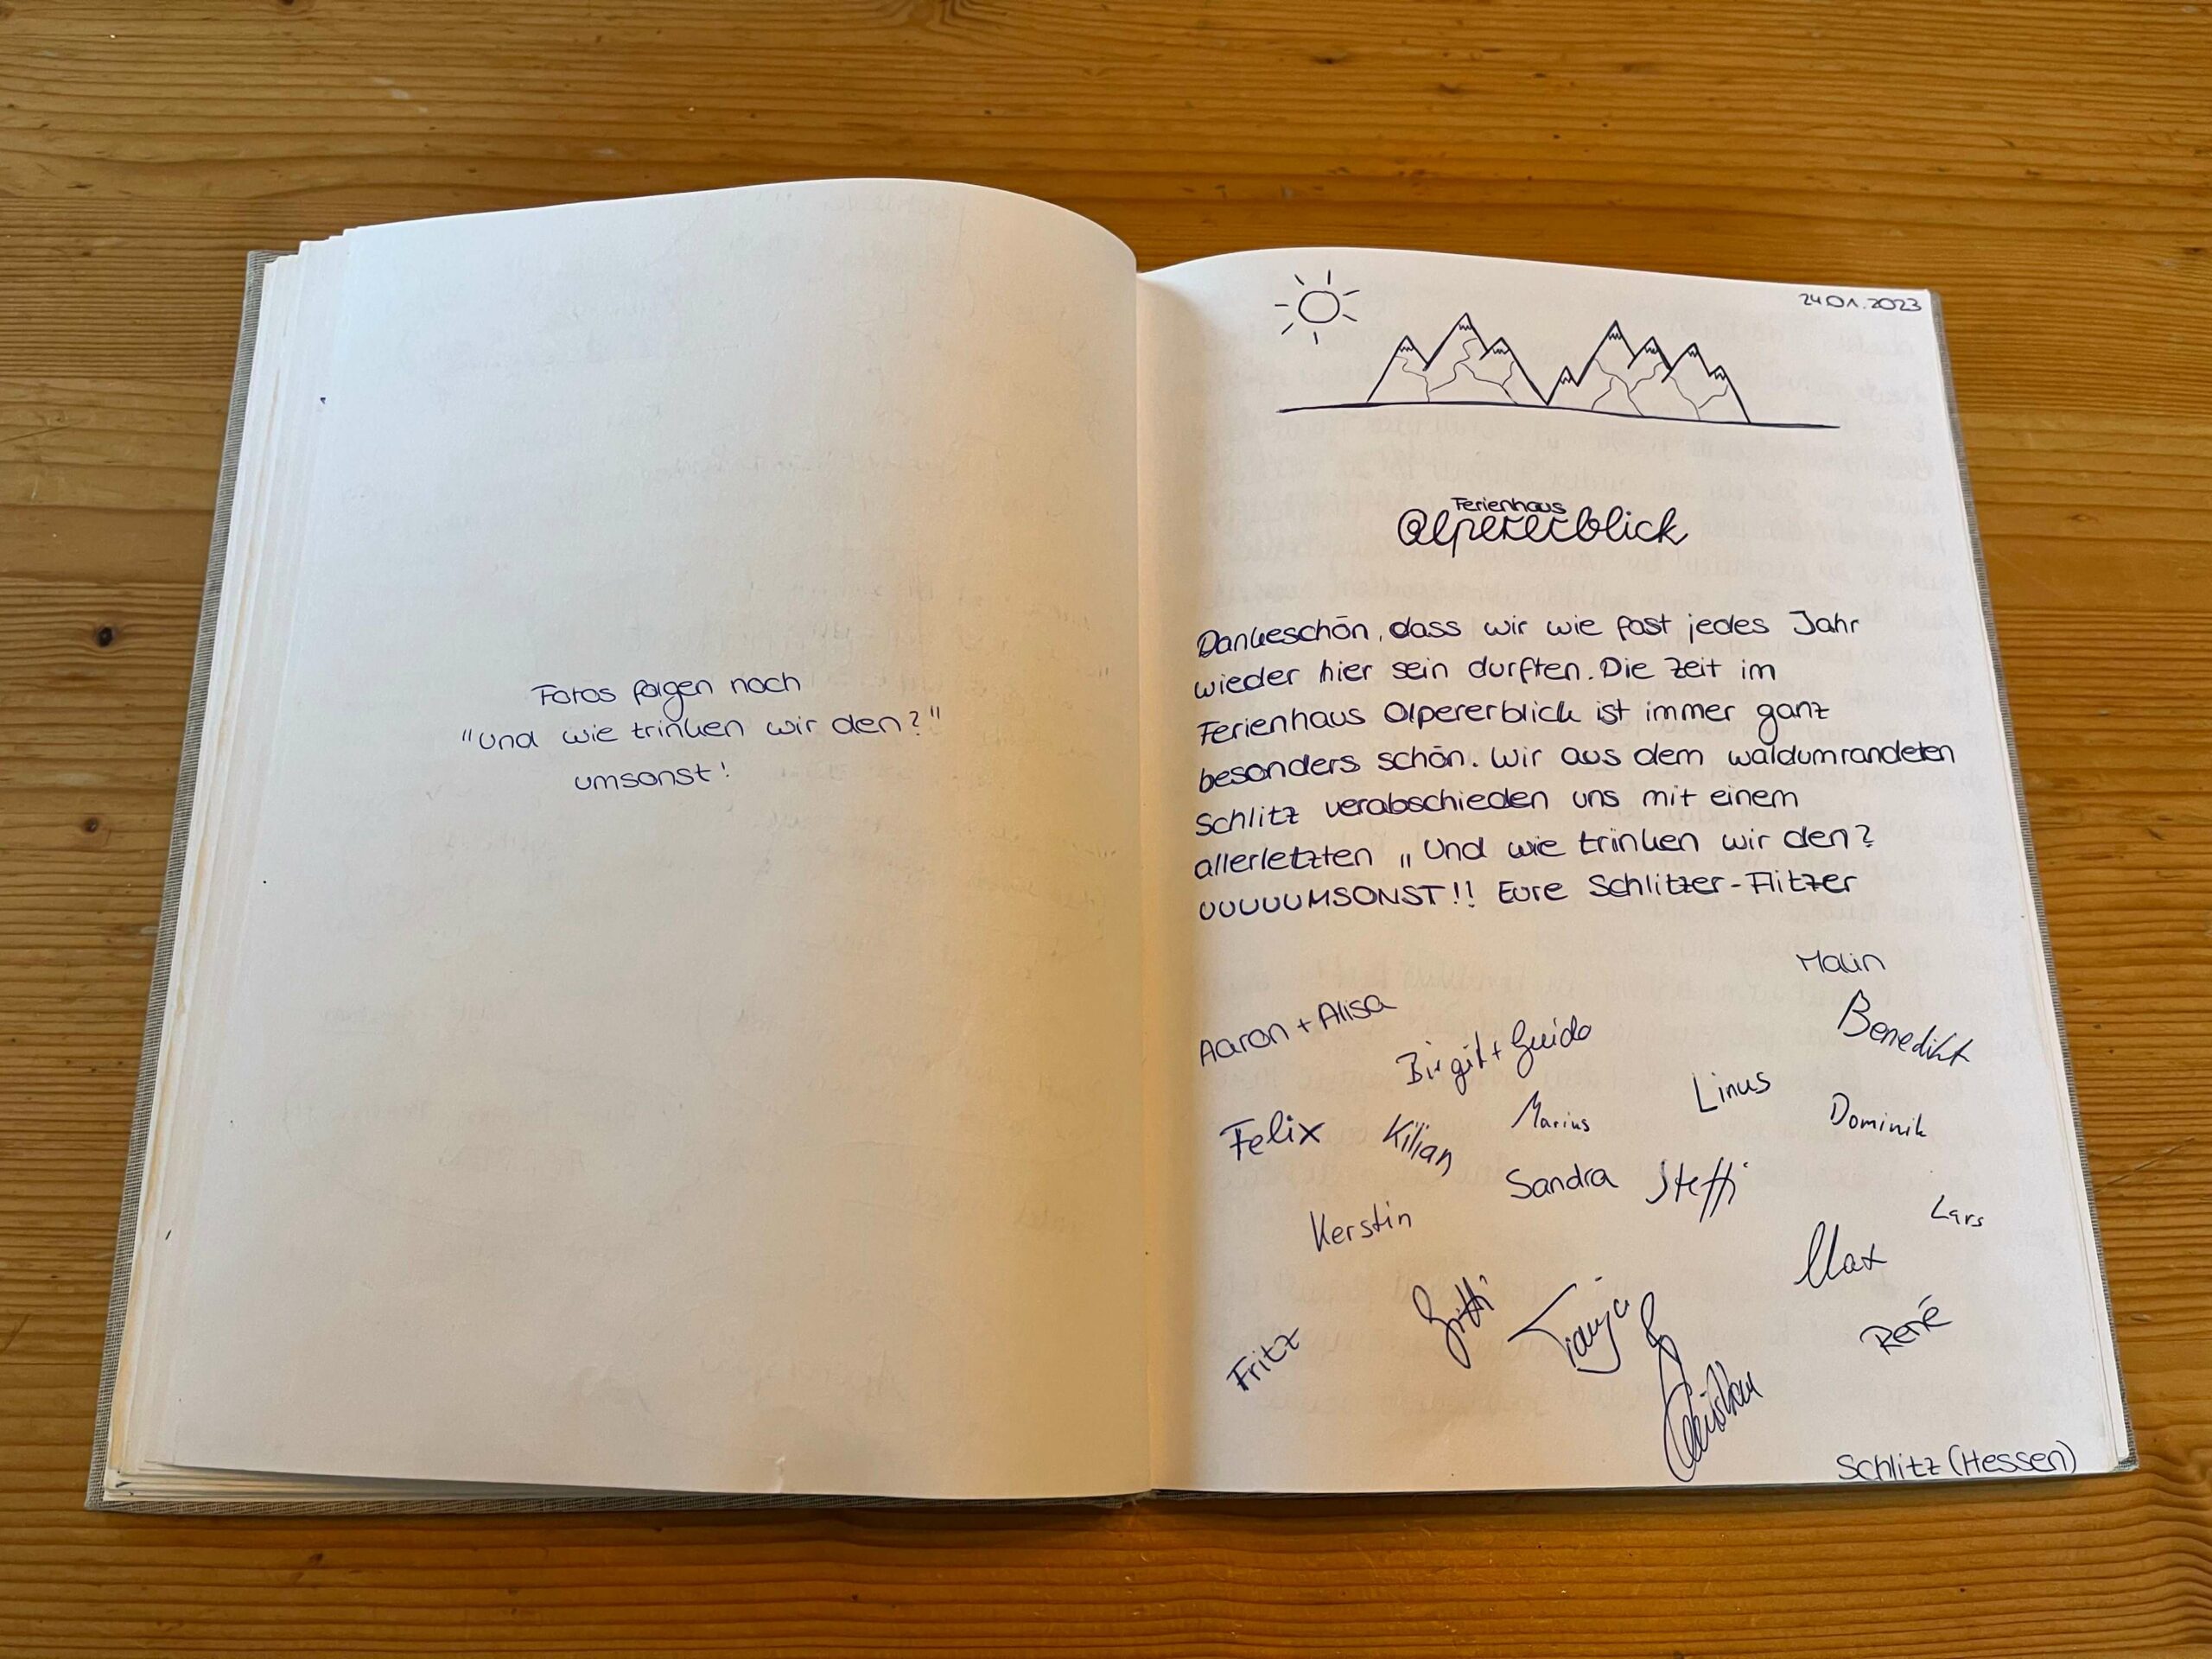 Fotos folgen noch
"Und wie trinken wir den?"
umsonst!
24.01.2023
Ferienhaus
Olpererblick
Dankeschön, dass wir wie fast jedes Jahr
wieder hier sein durften. Die Zeit im
Ferienhaus Olpererblick ist immer ganz
besonders schön. Wir aus dem waldumrandeten
Schlitz verabschieden uns mit einem
allerletzten „Und wie trinken wir den?
UUUUUMSONST!! Eure Schlitzer-Flitzer
Malin
Aaron + Alisa
Benedikt
Birgit + Guido
Linus
Felix
Kilian
Marius
Dominik
Sandra
Steffi
Kerstin
Lars
Max
Tanja
René
Fritz
Schlitz (Hessen)